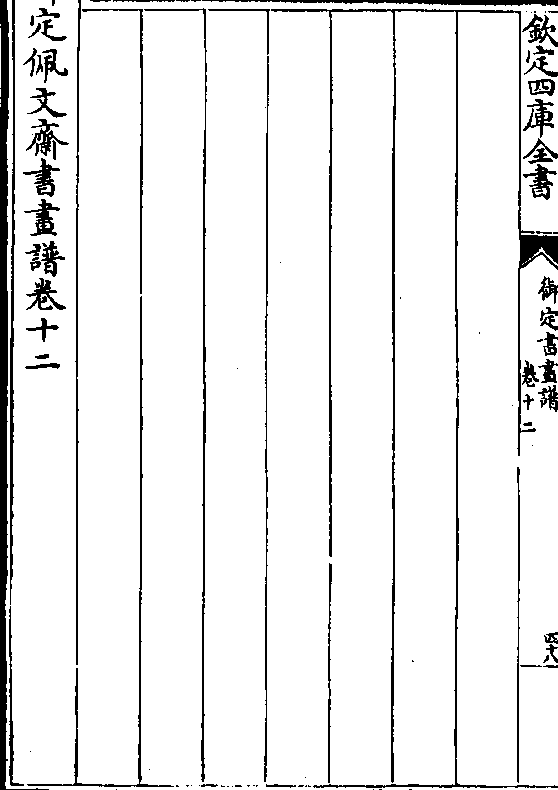 欽定四庫全書
御定書畫譜
卷十二
四十八
定佩文齋書畫譜卷十二